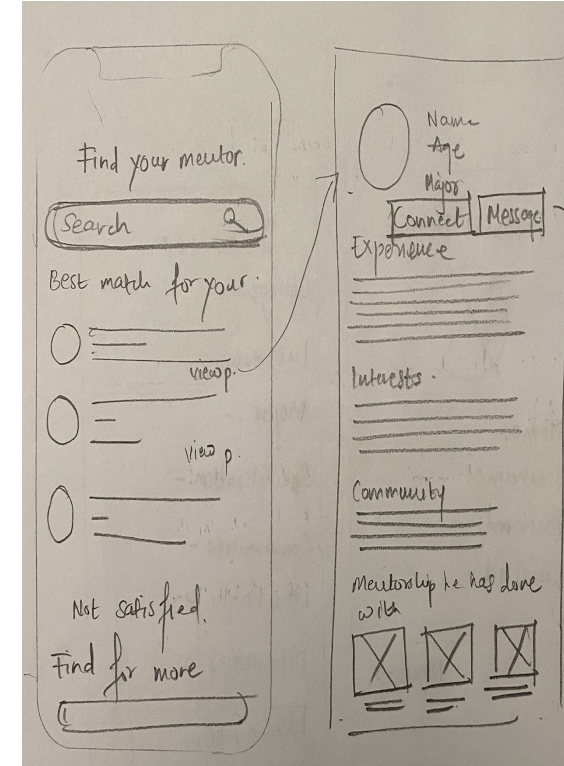 Find your mentor.
Search
Best match for your.
view p.
view p.
Not satisfied.
Find for more
Name
Age
Major
Connect
Message
Experience
Interests.
Community
Mentorship he has done
with